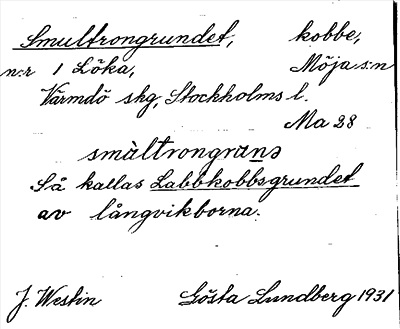 Smultrongrundet, kobbe,
n:r 1 Löka, Möja s:n
Värmdö skg, Stockholms l.
Ma 28
småltrongrunə
Så kallas Labbkobbsgrundet
av långvikborna.
J. Westin Gösta Lundberg 1931